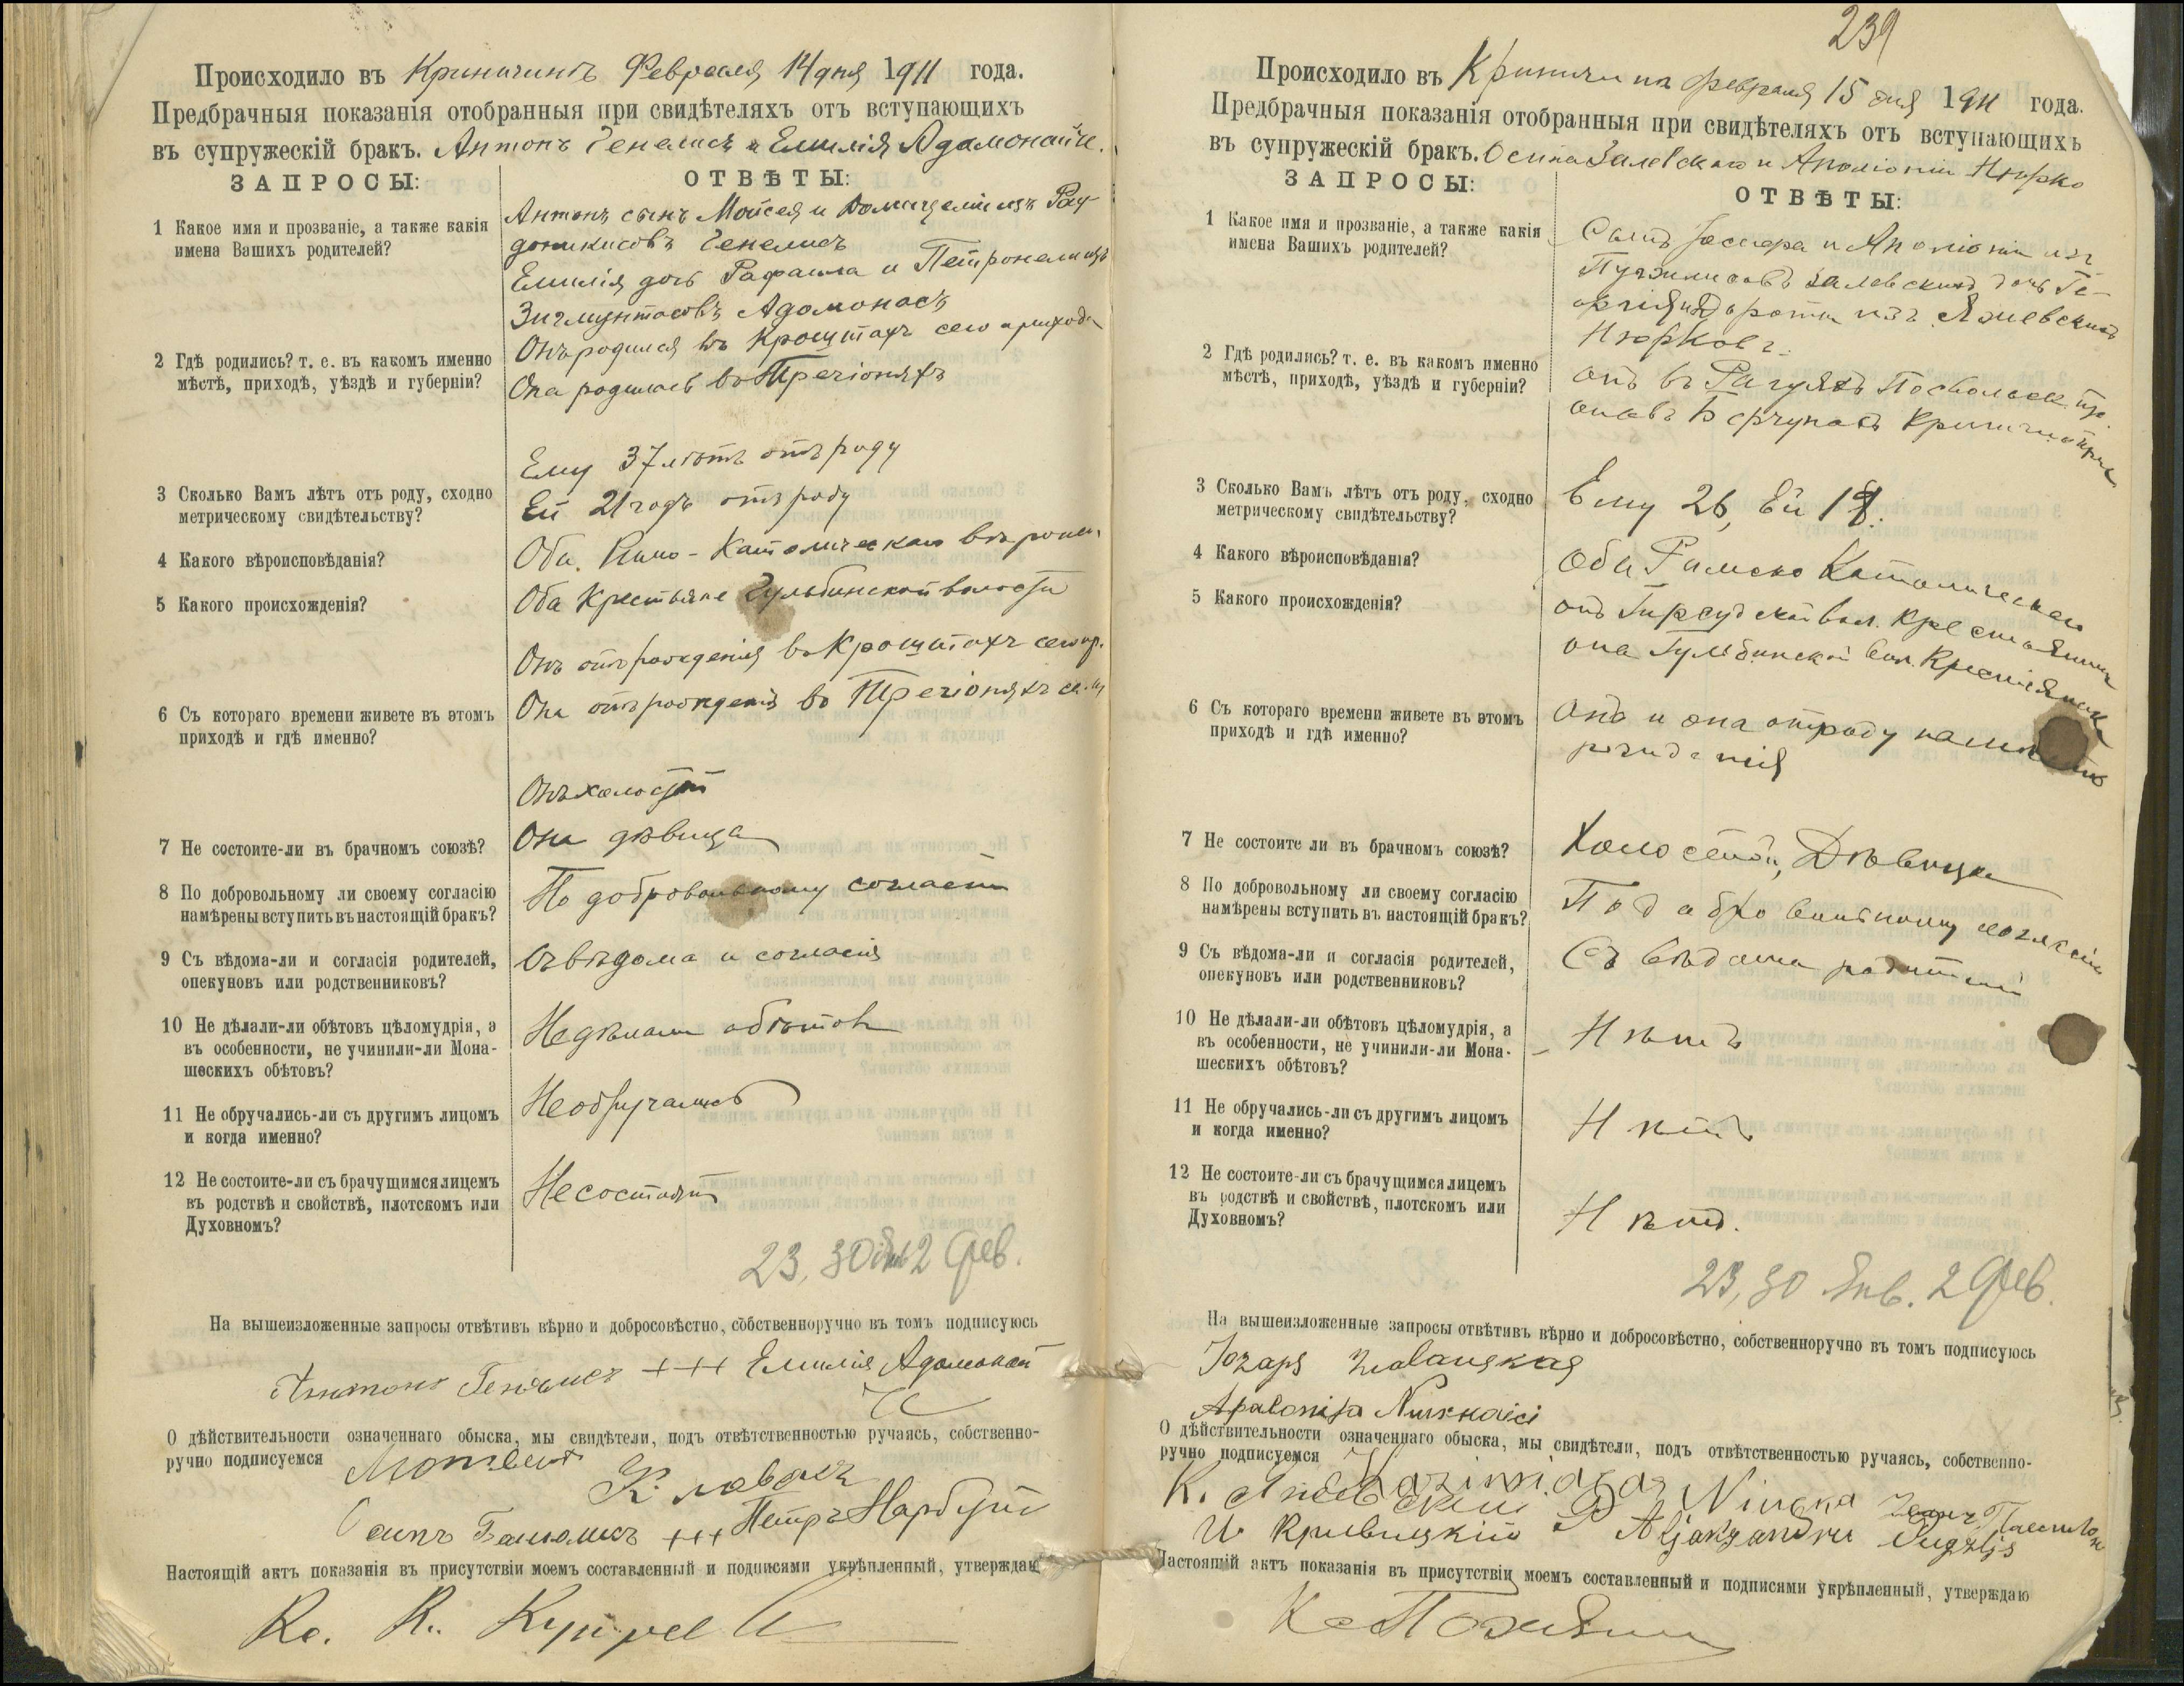 Происходило въ Криничинѣ Февраля 14 дня 1911 года.
Предбрачныя показанія отобранныя при свидѣтеляхъ отъ вступающихъ
въ супружескій бракъ. Антонъ Генелисъ и Емилія Адомонайте.
ЗАПРОСЫ:
ОТВѢТЫ:
1 Какое имя и прозваніе, а также какія
имена Вашихъ родителей?
Антонъ сынъ Мойсея и
Генелисъ
Емилія дочь Рафаила и Петронели изъ
Зигмунтасовъ Адомонасъ
2 Гдѣ родились? т. е. въ какомъ именно
мѣстѣ, приходѣ, уѣздѣ и губерніи?
Онъ родился въ Кроштахъ сего прихода
Она родилась въ Тречіоняхъ
3 Сколько Вамъ лѣтъ отъ роду, сходно
метрическому свидѣтельству?
Ему 37 лѣтъ отъ роду
Ей 21 годъ отъ роду
4 Какого вѣроисповѣданія?
Оба Римо-Католическаго
5 Какого происхожденія?
Оба Крестьяне Гульбинской волости
6 Съ котораго времени живете въ этомъ
приходѣ и гдѣ именно?
Онъ отъ рожденія въ Кроштахъ сего пр.
Она отъ рожденія въ Тречіоняхъ
7 Не состоите-ли въ брачномъ союзѣ?
Онъ холостъ
Она дѣвица
8 По добровольному ли своему согласію
намѣрены вступить въ настоящій бракъ?
По добровольному согласію
9 Съ вѣдома-ли и согласія родителей,
опекуновъ или родственниковъ?
Съ вѣдома и согласія
10 Не дѣлали-ли обѣтовъ цѣломудрія, а
въ особенности, не учинили-ли Мона-
шескихъ обѣтовъ?
Не дѣлали обѣтовъ
11 Не обручались-ли съ другимъ лицомъ
и когда именно?
Не обручались
12 Не состоите-ли съ брачущимся лицемъ
въ родствѣ и свойствѣ, плотскомъ или
Духовномъ?
Не состоятъ
23, 30 Янв 2 Фев.
На вышеизложенные запросы отвѣтивъ вѣрно и добросовѣстно, собственноручно въ томъ подписуюсь
Антонъ Генелисъ +++ Емилія Адомонай
О дѣйствительности означеннаго обыска, мы свидѣтели, подъ отвѣтственностью ручаясь, собственно-
ручно подписуемся
Осипъ +++ Петръ Нарбутъ
Настоящій актъ показанія въ присутствіи моемъ составленный и подписями укрѣпленный, утверждаю
239
Происходило въ февраля 15 дня 1911 года.
Предбрачныя показанія отобранныя при свидѣтеляхъ отъ вступающихъ
въ супружескій бракъ. Осипа Залевскаго и Аполіоніи Нюрко
ЗАПРОСЫ:
ОТВѢТЫ:
1 Какое имя и прозваніе, а также какія
имена Вашихъ родителей?
и Аполіоніи изъ
Залевскихъ дочь Ге-
изъ Яневскихъ
2 Гдѣ родились? т. е. въ какомъ именно
мѣстѣ, приходѣ, уѣздѣ и губерніи?
онъ въ
она въ
3 Сколько Вамъ лѣтъ отъ роду, сходно
метрическому свидѣтельству?
Ему 26, Ей
4 Какого вѣроисповѣданія?
Оба Римско Католическаго
5 Какого происхожденія?
онъ вол. крестьянинъ
она Гульбинской вол. Крестьянка
6 Съ котораго времени живете въ этомъ
приходѣ и гдѣ именно?
онъ и она
7 Не состоите ли въ брачномъ союзѣ?
Холостой, Дѣвица
8 По добровольному ли своему согласію
намѣрены вступить въ настоящій бракъ?
По добровольному согласію
9 Съ вѣдома-ли и согласія родителей,
опекуновъ или родственниковъ?
Съ вѣдома родителей
10 Не дѣлали-ли обѣтовъ цѣломудрія, а
въ особенности, не учинили-ли Мона-
шескихъ обѣтовъ?
Нѣтъ
11 Не обручались-ли съ другимъ лицомъ
и когда именно?
Нѣтъ
12 Не состоите-ли съ брачущимся лицемъ
въ родствѣ и свойствѣ, плотскомъ или
Духовномъ?
Нѣтъ.
23, 30 Янв. 2 Фев.
На вышеизложенные запросы отвѣтивъ вѣрно и добросовѣстно, собственноручно въ томъ подписуюсь
О дѣйствительности означеннаго обыска, мы свидѣтели, подъ отвѣтственностью ручаясь, собственно-
ручно подписуемся
К. Яневскій
И Кривицкій
Настоящій актъ показанія въ присутствіи моемъ составленный и подписями укрѣпленный, утверждаю